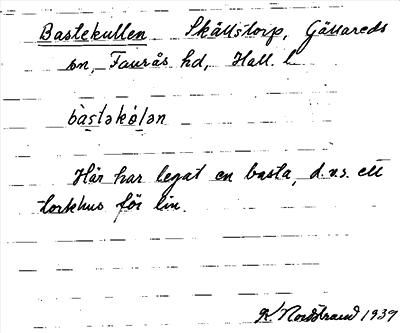 Bastekullen Skällstorp, Gällareds
sn, Faurås hd, Hall. l.
bàstəkɷ́lən
Här har legat en basta, d.v.s. ett
torkhus för lin.
K. Nordstrand 1939